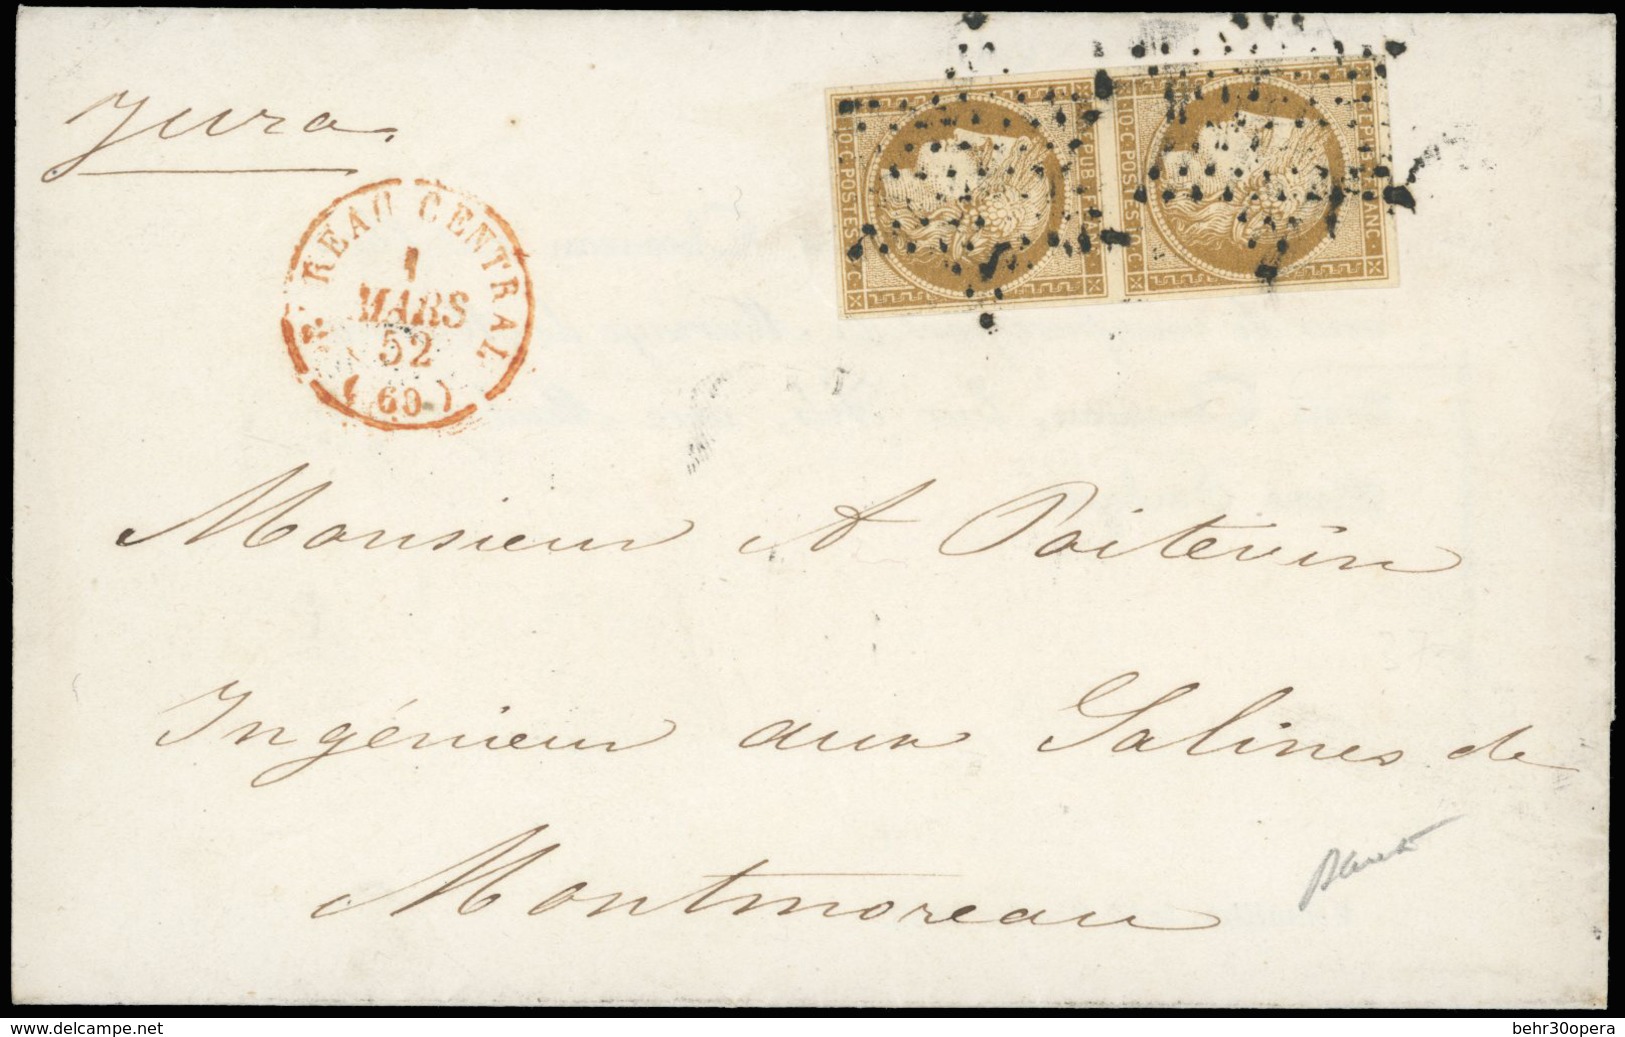 Jura
REPUB. FRANC.
10·C·POSTES 10·C
REPUB. FRANC.
10·C·POSTES 10·C
BUREAU CENTRAL
1
MARS
52
(60)
Monsieur A Poitevin
Ingénieur aux Salines de
Montmoreau
www.delcampe.net
behr30opera